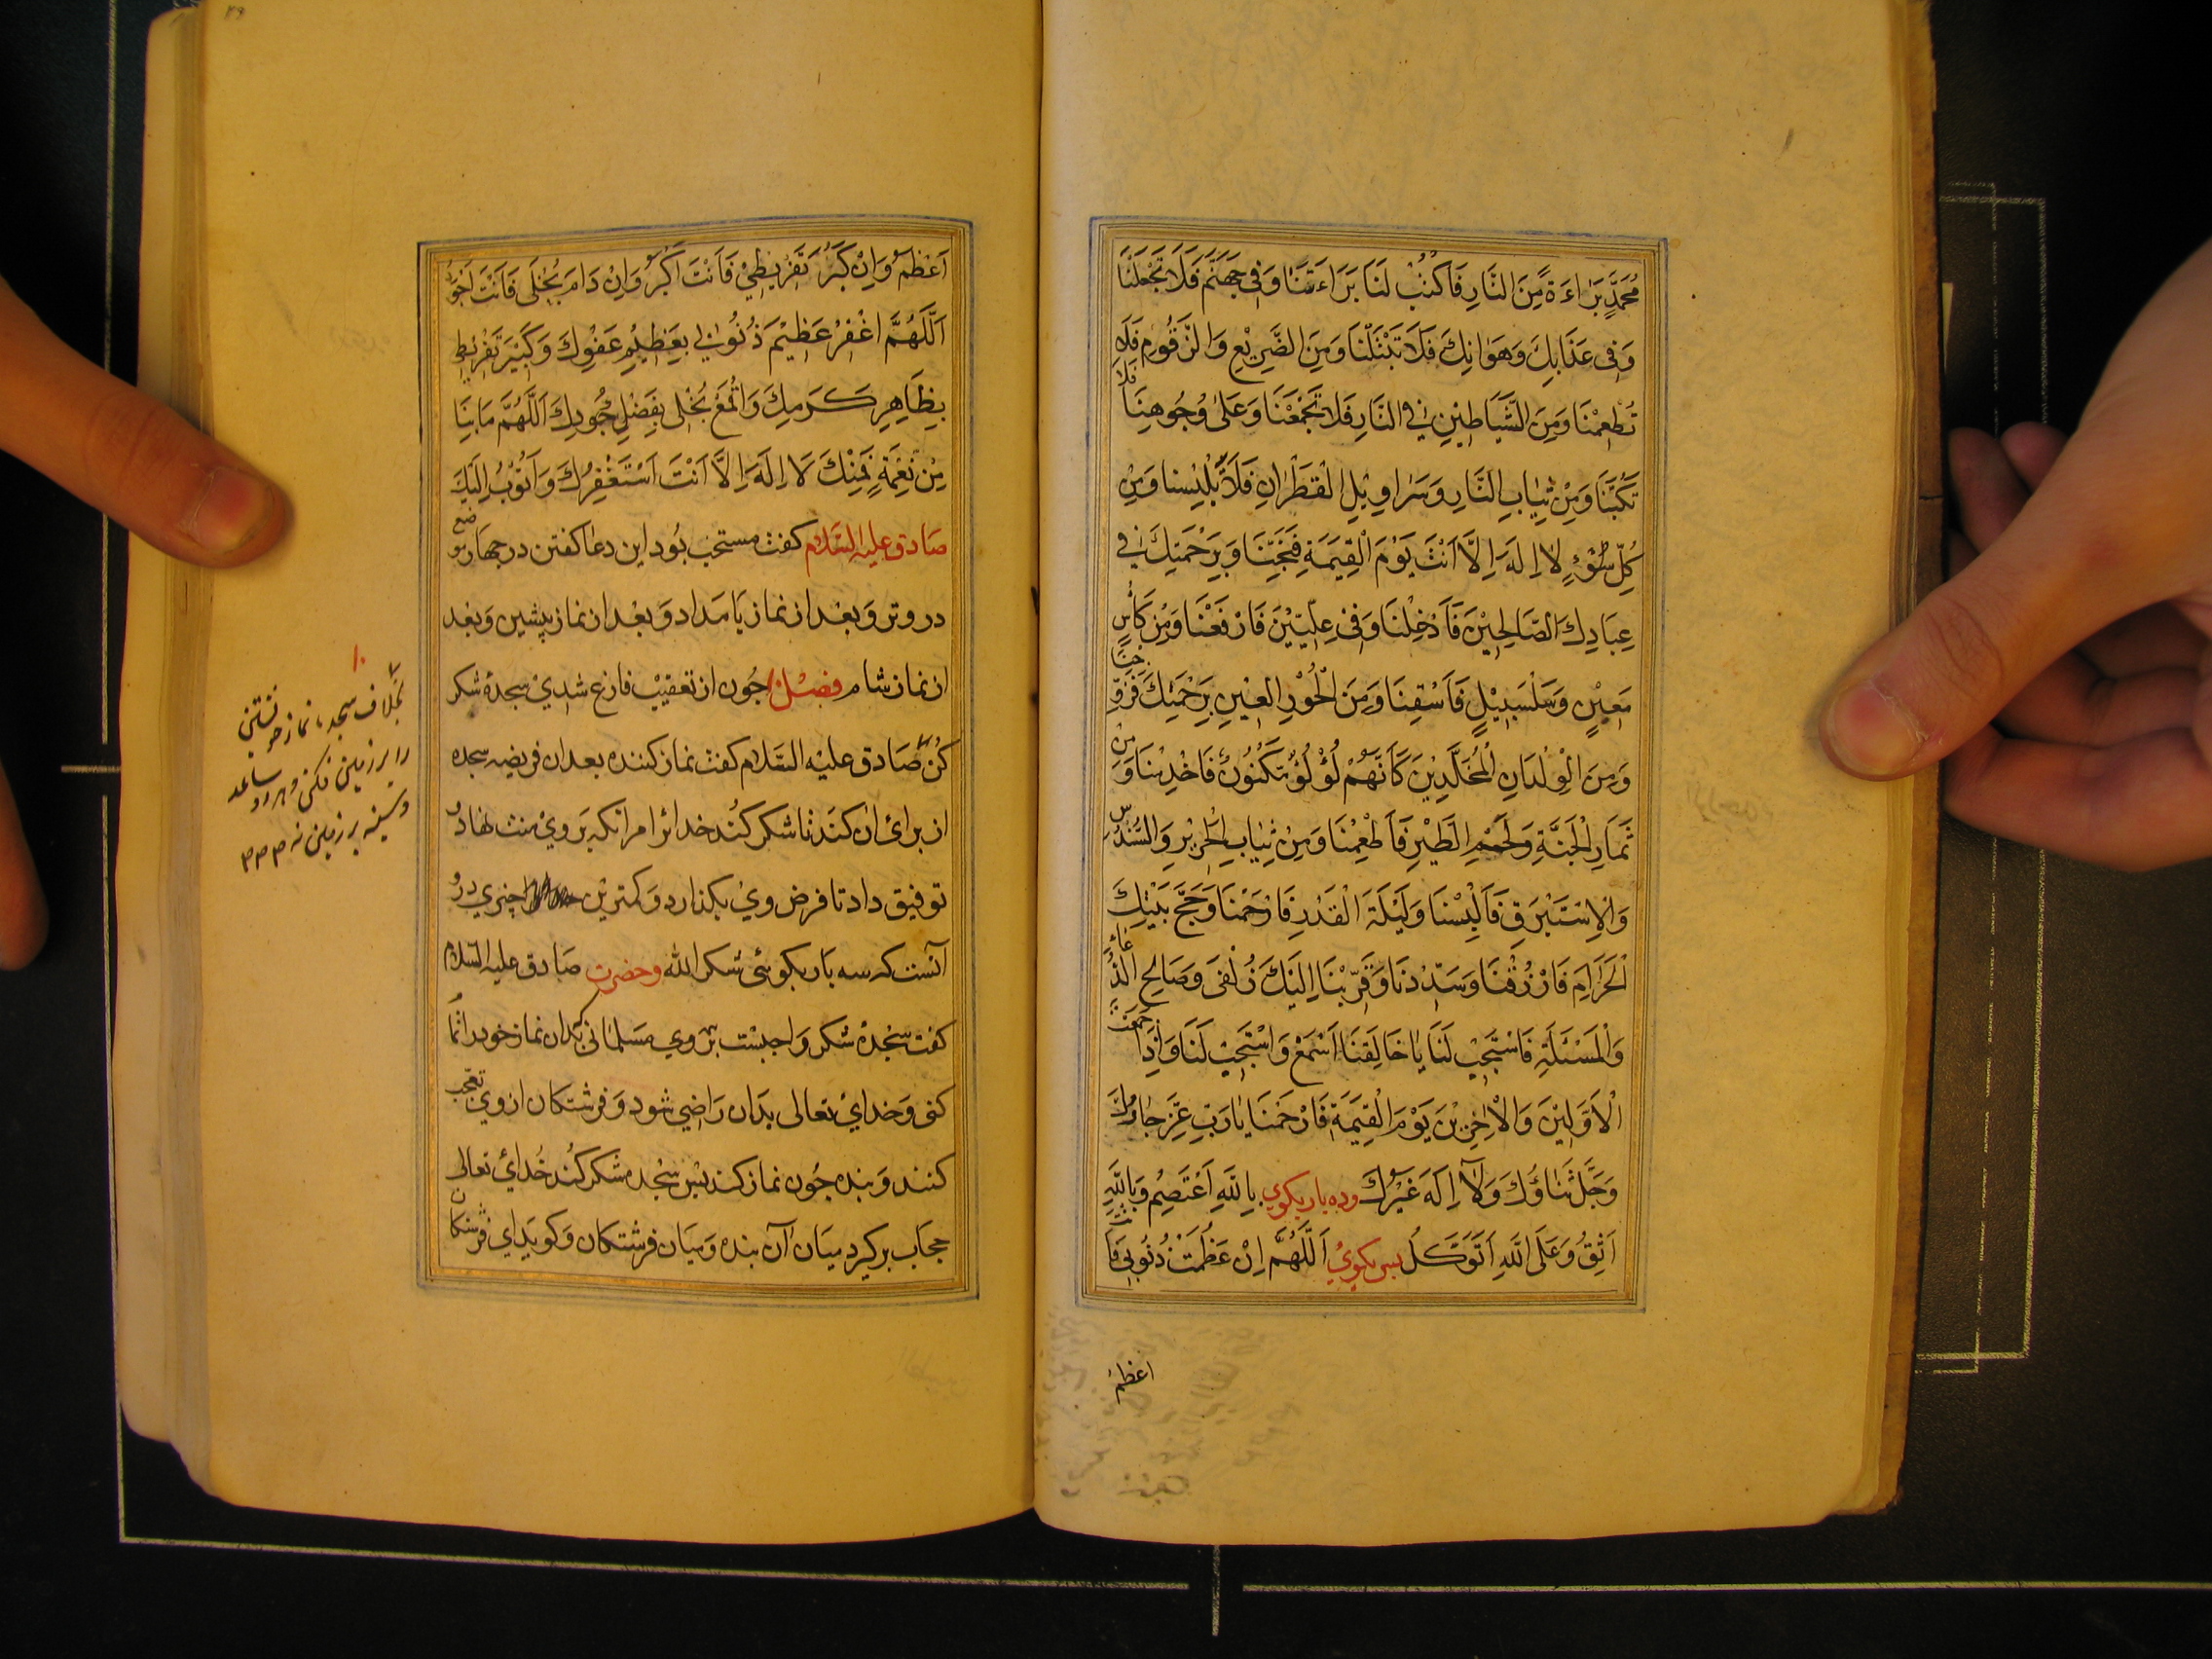 مُحَمَّدٍ بَرَاءَةً مِنَ النَّارِ فَاكْتُبْ لَنَا بَرَاءَتَنَا وَفِي جَهَنَّمَ فَلَا تَجْعَلْنَا
وَفِي عَذَابِكَ وَهَوَانِكَ فَلَا تَبْتَلْنَا وَمِنَ الضَّرِيْعِ وَالزَّقُومِ فَلَا
تُطْعِمْنَا وَمِنَ الشَّيَاطِيْنِ فِي النَّارِ فَلَا تَجْمَعْنَا وَعَلَى وُجُوهِنَا فَلَا
تَكُبَّنَا وَمِنْ ثِيَابِ النَّارِ وَسَرَاوِيْلِ الْقَطْرَانِ فَلَا تُلْبِسْنَا وَمِنْ
كُلِّ سُوْءٍ لَا اِلَهَ اِلَّا اَنْتَ يَوْمَ الْقِيمَةِ فَنَجِّنَا وَبِرَحْمَتِكَ فِي
عِبَادِكَ الصَّالِحِيْنَ فَاَدْخِلْنَا وَفِي عِلِّيّيْنَ فَارْفَعْنَا وَمِنْ كَأْسٍ
مَعِيْنٍ وَسَلْسَبِيْلٍ فَاَسْقِنَا وَمِنَ الْحُوْرِ الْعِيْنِ بِرَحْمَتِكَ فَزَوِّجْنَا
وَمِنَ الْوِلْدَانِ الْمُخَلَّدِيْنَ كَاَنَّهُمْ لُؤْلُؤٌ مَكْنُوْنٌ فَاَخْدِمْنَا وَمِنْ
ثِمَارِ الْجَنَّةِ وَلَحْمِ الطَّيْرِ فَاَطْعِمْنَا وَمِنْ ثِيَابِ الْحَرِيْرِ وَالسُّنْدُسِ
وَالْاِسْتَبْرَقِ فَاَلْبِسْنَا وَلَيْلَةَ الْقَدْرِ فَارْحَمْنَا وَحَجَّ بَيْتِكَ
الْحَرَامِ فَارْزُقْنَا وَسَدِّدْنَا وَقَرِّبْنَا اِلَيْكَ زُلْفَى وَصَالِحِ الدُّعَاءِ
وَالْمَسْئَلَةِ فَاسْتَجِبْ لَنَا يَا خَالِقَنَا اَسْمَعْ وَاسْتَجِبْ لَنَا وَاِذَا جَمَعْتَ
الْاَوَّلِيْنَ وَالْاٰخِرِيْنَ يَوْمَ الْقِيمَةِ فَارْحَمْنَا يَا رَبِّ عَزَّ جَارُكَ
وَجَلَّ ثَنَاؤُكَ وَلَا اِلَهَ غَيْرُكَ وده بار بكوي بِاللَّهِ اَعْتَصِمُ وَبِاللَّهِ
اَثِقُ وَعَلَى اللَّهِ اَتَوَكَّلُ پس بكوي اَللَّهُمَّ اِنْ عَظُمَتْ ذُنُوبِي فَاَنْتَ
اعظم
اَعْظَمُ وَاِنْ كَبُرَ تَفْرِيطِيْ فَاَنْتَ اَكْبَرُ وَاِنْ دَامَ بُخْلِى فَاَنْتَ اَجْوَدُ
اَللَّهُمَّ اغْفِرْ عَظِيْمَ ذُنُوْبِي بِعَظِيْمِ عَفْوِكَ وَكَبِيْرَ تَفْرِيْطِي
بِظَاهِرِ كَرَمِكَ وَاقْمَعْ بُخْلِى بِفَضْلِ جُودِكَ اَللَّهُمَّ مَا بِنَا
مِنْ نِعْمَةٍ فَمِنْكَ لَا اِلَهَ اِلَّا اَنْتَ اَسْتَغْفِرُكَ وَاَتُوْبُ اِلَيْكَ
صادق عليه السّلام كفت مستحب بُود اين دعا كفتن در چهار موضع
در وتر وَبعْد از نماز بَامداد وَبعْد از نماز پيشين وَبعْد
از نماز شام فصل چُون از تعقيب فارغ شدي سجدۀ شكر
كُن صَادق عليْه السَّلام كفت نماز كننده بعد از فريضه سجده
از براى ان كَند تا شكر كُند خدائرا مرانكه بَر ويْ منت نهاد
توفيق داد تا فرض ويْ بكذارد وَكمترين چيزي در
آنست كه سه بَار بكوئي شكر الله وحضرت صَادق عليه السّلام
كفت سجْدۀ شكر وَاجبست بر وي مسلمانى بدان نماز خود را تمام
كنى وَخدايْ تعالى بدَان رَاضِي شود وَفرشتكان از وي تعجّب
كنند وَبنده چُون نماز كند پس سجْده شكر كُند خُدايْ تعالى
حجَاب بر كيرد ميَان آن بنده وَميَان فرشتكان وَكويد اي فرشتكان
بخلاف سجده نماز خويشتن
را بر زمين فكنى و هر دو ساعد
و سينه بر زمين نه